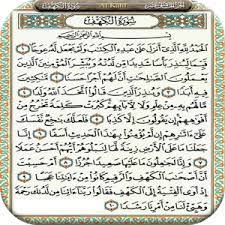 Al-Kahf
سُورَةُ الكَهْفِ
الْحَمْدُ لِلَّهِ الَّذِي أَنْزَلَ عَلَى عَبْدِهِ الْكِتَٰبَ وَلَمْ يَجْعَلْ لَهُ عِوَجًا ١
قَيِّمًا لِيُنْذِرَ بَأْسًا شَدِيدًا مِنْ لَدُنْهُ وَيُبَشِّرَ الْمُؤْمِنِينَ الَّذِينَ
يَعْمَلُونَ الصَّٰلِحَٰتِ أَنَّ لَهُمْ أَجْرًا حَسَنًا ٢ مَٰكِثِينَ فِيهِ
أَبَدًا ٣ وَيُنْذِرَ الَّذِينَ قَالُوا اتَّخَذَ اللَّهُ وَلَدًا ٤
مَا لَهُمْ بِهِ مِنْ عِلْمٍ وَلَا لِآبَائِهِمْ كَبُرَتْ كَلِمَةً تَخْرُجُ مِنْ
أَفْوَٰهِهِمْ إِنْ يَقُولُونَ إِلَّا كَذِبًا ٥ فَلَعَلَّكَ بَٰخِعٌ نَفْسَكَ عَلَى
ءَاثَٰرِهِمْ إِنْ لَمْ يُؤْمِنُوا بِهَٰذَا الْحَدِيثِ أَسَفًا ٦ إِنَّا جَعَلْنَا
مَا عَلَى الْأَرْضِ زِينَةً لَهَا لِنَبْلُوَهُمْ أَيُّهُمْ أَحْسَنُ عَمَلًا ٧
وَإِنَّا لَجَٰعِلُونَ مَا عَلَيْهَا صَعِيدًا جُرُزًا ٨ أَمْ حَسِبْتَ
أَنَّ أَصْحَٰبَ الْكَهْفِ وَالرَّقِيمِ كَانُوا مِنْ ءَايَٰتِنَا عَجَبًا ٩
إِذْ أَوَى الْفِتْيَةُ إِلَى الْكَهْفِ فَقَالُوا رَبَّنَا ءَاتِنَا مِنْ لَدُنْكَ رَحْمَةً
وَهَيِّئْ لَنَا مِنْ أَمْرِنَا رَشَدًا ١٠